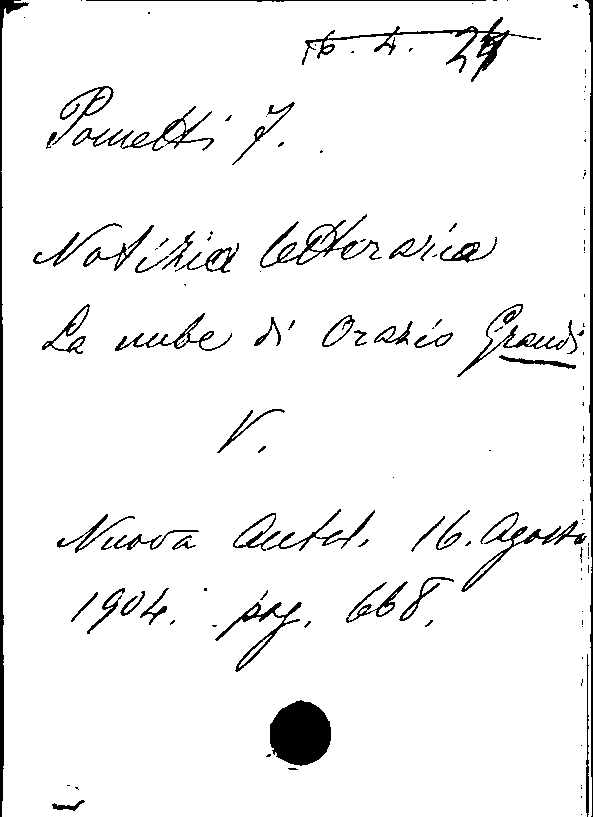 16. 4. 24
Pometti F.
Notizia letteraria
La nube di Orazio Grandi
V.
Nuova Antol. 16. Agosto
1904. pag. 668.